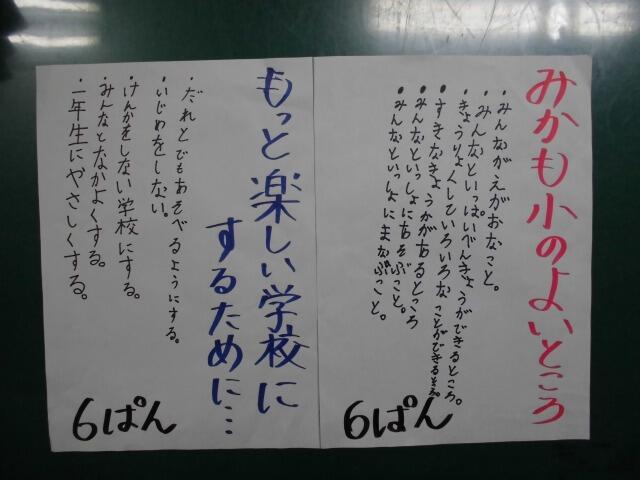 みかも小のよいところ
・みんながえがおなこと。
・みんなといっぱいべんきょうができるところ。
・きょうりょくしていろいろなことができるところ
・すきなきょうかがあるところ
・みんなといっしょにあそぶこと。
・みんなといっしょにまなぶこと。
6ぱん
もっと楽しい学校に
するために…
・だれとでもあそべるようにする。
・いじめをしない。
・けんかをしない学校にする。
・みんなとなかよくする。
・一年生にやさしくする。
6ぱん